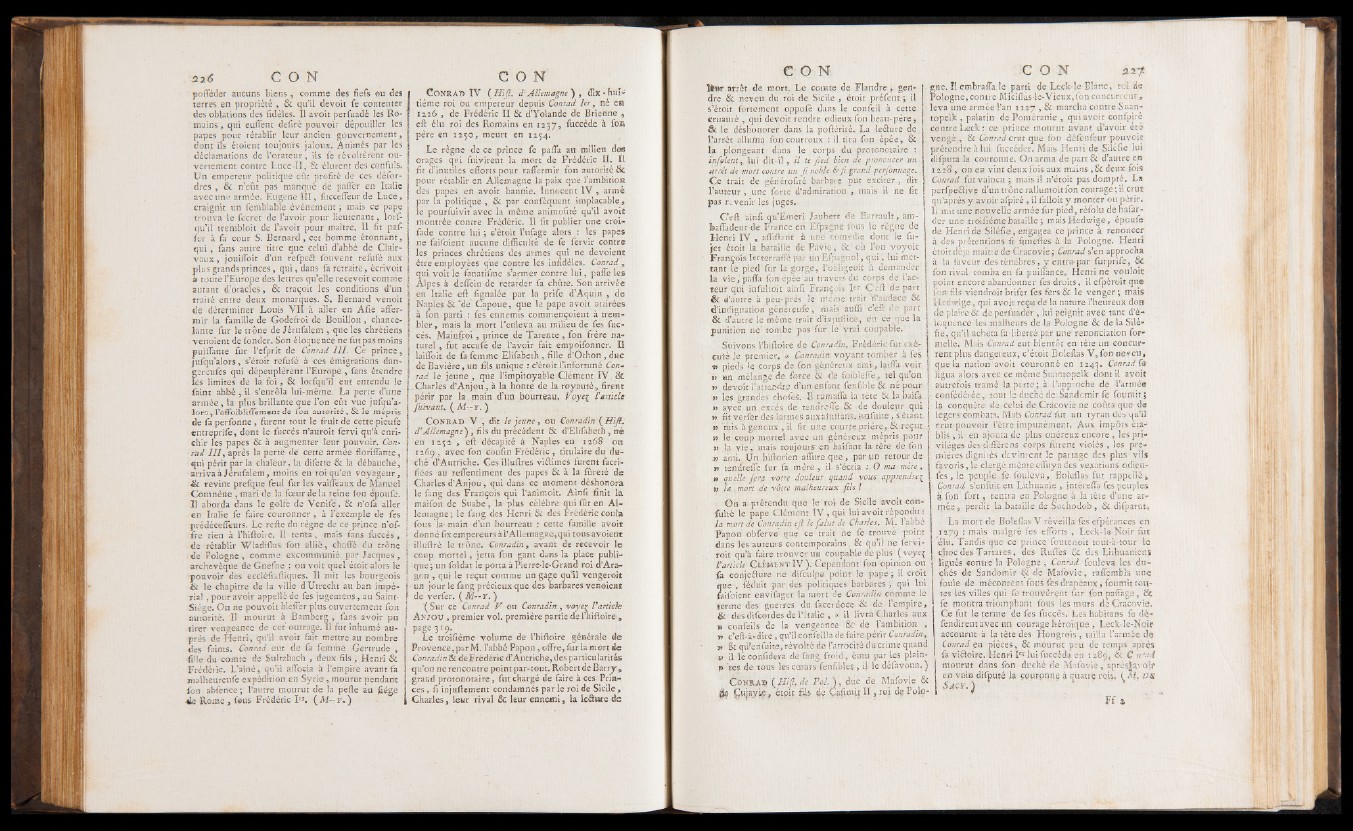 226 C O N
posséder aucuns biens, comme des fiefs ou des
terres en propriété, & qu'il devoit se contenter
des oblations des fidèles. Il avoit persuadé les Ro-
mains, qui eussent desiré pouvoir dépouiller les
papes pour rétablir leur ancien gouvernement,
dont ils étoient toujours jaloux. Animés par les
déclamations de l'orateur, ils se révoltèrent ou-
vertement contre Luce II, & élurent des consuls.
Un empereur politique eût profité de ces désor-
dres, & n'eût pas manqué de passer en Italie
avec une armée. Eugene III, successeur de Luce,
craignit un semblable événement; mais ce pape
trouva le secret de l'avoir pour lieutenant, lors-
qu'il trembloit de l'avoir pour maître. Il fit pas-
ser à sa cour S. Bernard, cet homme étonnant,
qui, sans autre titre que celui d'abbé de Clair-
vaux, jouissoit d'un respect souvent refusé aux
plus grands princes, qui, dans sa retraite, écrivoit
à toute l'Europe des lettres qu'elle recevoit comme
autant d'oracles, & traçoit les conditions d'un
traité entre deux monarques. S. Bernard venoit
de déterminer Louis VII à aller en Asie affer-
mir la famille de Godefroi de Bouillon, chance-
lante sur le trône de Jérusalem, que les chrétiens
venoient de fonder. Son éloquence ne fut pas moins
puissante sur l'esprit de Conrad III. Ce prince,
jusqu'alors, s'étoit refusé à ces émigrations dan-
gereuses qui dépeuplèrent l'Europe, sans étendre
les limites de la foi, & lorsqu'il eut entendu le
saint abbé, il s'enrôla lui-même. La perte d'une
armée, la plus brillante que l'on eût vue jusqu'a-
lors, l'affoiblissement de son autorité, & le mépris
de sa personne, furent tout le fruit de cette pieuse
entreprise, dont le succès n'auroit servi qu'à enri-
chir les papes & à augmenter leur pouvoir. Con-
rad III, après la perte de cette armée florissante,
qui périt par la chaleur, la disette & la débauche,
arriva à Jérusalem, moins en roi qu'en voyageur,
& revint presque seul sur les vaisseaux de Manuel
Comnène, mari de la sœur de la reine son épouse.
Il aborda dans le golfe de Venise, & n'osa aller
en Italie se faire couronner, à l'exemple de ses
prédécesseurs. Le reste du règne de ce prince n'of-
fre rien à l'histoire. Il tenta, mais sans succès,
de rétablir Wladislas son allié, chassé du trône
de Pologne, comme excommunié par Jacques,
archevêque de Gnesne : on voit quel étoit alors le
pouvoir des ecclésiastiques. Il mit les bourgeois
& le chapitre de la ville d'Utrecht au ban impé-
rial, pour avoir appellé de ses jugemens, au Saint-
Siége. On ne pouvoit blesser plus ouvertement son
autorité. Il mourut à Bamberg, sans avoir pu
tirer vengeance de cet outrage. Il fut inhumé au-
près de Henri, qu'il avoit fait mettre au nombre
des saints. Conrad eut de sa femme Gertrude,
fille du comte de Sultzbach, deux fils, Henri &
Frédéric. L'ainé, qu'il associa à l'empire avant sa
malheureuse expédition en Syrie, mourut pendant
son absence; l'autre mourut de la peste au siége
de Rome, sous Frédéric Ier. (M—Y.)
C O N
CONRAD IV (Hist. d'Allemagne), dix-hui-
tième roi ou empereur depuis Conrad Ier, né en
1226, de Frédéric II & d'Yolande de Brienne,
est élu roi des Romains en 1237, succède à son
père en 1250, meurt en 1254.
Le règne de ce prince se passa au milieu des
orages qui suivirent la mort de Frédéric II. Il
fit d'inutiles efforts pour raffermir son autorité &
pour rétablir en Allemagne la paix que l'ambition
des papes en avoit bannie. Innocent IV, armé
par la politique, & par conséquent implacable,
le poursuivit avec la même animosité qu'il avoit
montrée contre Frédéric. Il fit publier une croi-
sade contre lui; c'étoit l'usage alors : les papes
ne faisoient aucune difficulté de se servir contre
les princes chrétiens des armes qui ne devoient
être employées que contre les infidèles. Conrad,
qui voit le fanatisme s'armer contre lui, passe les
Alpes à dessein de retarder sa chûte. Son arrivée
en Italie est signalée par la prise d'Aquin, de
Naples & de Capoue, que le pape avoit attirées
à son parti : ses ennemis commençoient à trem-
bler, mais la mort l'enleva au milieu de ses suc-
cès. Mainfroi, prince de Tarente, son frère na-
turel, fut accusé de l'avoir fait empoisonner. Il
laissoit de sa femme Elisabeth, fille d'Othon, duc
de Bavière, un fils unique : c'étoit l'infortuné Con-
rad le jeune, que l'impitoyable Clément IV &
Charles d'Anjou, à la honte de la royauté, firent
périr par la main d'un bourreau. Voyez l'article
suivant. (M—Y.)
CONRAD V, dit le jeune, ou Conradin (Hist.
d'Allemagne), fils du précédent & d'Elisabeth, né
en 1252, est décapité à Naples en 1268 ou
1269, avec son cousin Frédéric, titulaire du du-
ché d'Autriche. Ces illustres victimes furent sacri-
fiées au ressentiment des papes & à la sûreté de
Charles d'Anjou, qui dans ce moment déshonora
le sang des François qui l'animoit. Ainsi finit la
maison de Suabe, la plus célèbre qui fût en Al-
lemagne; le sang des Henri & des Frédéric coula
sous la main d'un bourreau : cette famille avoit
donné six empereurs à l'Allemagne, qui tous avoient
illustré le trône. Conradin, avant de recevoir le
coup mortel, jetta son gant dans la place publi-
que; un soldat le porta à Pierre-le-Grand roi d'Ara-
gon, qui le reçut comme un gage qu'il vengeroit
un jour le sang précieux que des barbares venoient
de verser. (M—Y.)
(Sur ce Conrad V ou Conradin, voyez l'article
ANJOU, premier vol. première partie de l'histoire,
page 319.
Le troisième volume de l'histoire générale de
Provence, par M. l'abbé Papon, offre, sur la mort de
Conradin & de Frédéric d'Autriche, des particularités
qu'on ne rencontre point par-tout. Robert de Barry,
grand protonotaire, fut chargé de faire à ces Prin-
ces, si injustement condamnés par le roi de Sicile,
Charles, leur rival & leur ennemi, la lecture de
C O N
leur arrêt de mort. Le comte de Flandre, gen-
dre & neveu du roi de Sicile, étoit présent; il
s'étoit fortement opposé dans le conseil à cette
cruauté, qui devoit rendre odieux son beau-père,
& le déshonorer dans la postérité. La lecture de
l'arrêt alluma son courroux : il tira son épée, &
la plongeant dans le corps du protonotaire :
insolent, lui dit-il, il te sied bien de prononcer un
arrêt de mort contre un si noble & si grand personnage.
Ce trait de générosité barbare put exciter, dit
l'auteur, une sorte d'admiration, mais il ne fit
pas revenir les juges.
C'est ainsi qu'Emeri Jaubert de Barrault, am-
bassadeur de France en Espagne sous le règne de
Henri IV, assistant à une comédie dont le su-
jet étoit la bataille de Pavie, & où l'on voyoit
François Ier terrassé par un Espagnol, qui, lui met-
tant le pied sur la gorge, l'obligeoit à demander
la vie, passa son épée au travers du corps de l'ac-
teur qui insultoit ainsi François Ier. C'est de part
& d'autre à peu-près le même trait d'audace &
d'indignation généreuse, mais aussi c'est de part
& d'autre le même trait d'injustice, en ce que la
punition ne tombe pas sur le vrai coupable.
Suivons l'histoire de Conradin, Frédéric fut exé-
cuté le premier. « Conradin voyant tomber à ses
» pieds le corps de son généreux ami, laissa voir
» un mélange de force & de foiblesse, tel qu'on
» devoit l'attendre d'un enfant sensible & né pour
» les grandes choses. Il ramassa la tête & la baisa
» avec un excès de tendresse & de douleur qui
» fit verser des larmes aux assistans. ensuite, s'étant
» mis à genoux, il fit une courte prière, & reçut
» le coup mortel avec un généreux mépris pour
» la vie, mais toujours en baisant la tête de son
» ami. Un historien assure que, par un retour de
» tendresse sur sa mère, il s'écria : O ma mère,
» quelle sera votre douleur quand vous apprendrez
» la mort de votre malheureux fils!
On a prétendu que le roi de Sicile avoit con-
sulté le pape Clément IV, qui lui avoit répondu :
la mort de Conradin est le salut de Charles. M. l'abbé
Papon observe que ce trait ne se trouve point
dans les auteurs contemporains, & qu'il ne servi-
roit qu'à faire trouver un coupable de plus (voyez
l'article CLÉMENT IV). Cependant son opinion ou
sa conjecture ne disculpe point le pape; il croit
que, séduit par des politiques barbares, qui lui
faisoient envisager la mort de Conradin comme le
terme des guerres du sacerdoce & de l'empire,
& des discordes de l'Italie, « il livra Charles aux
» conseils de la vengeance & de l'ambition,
» c'est-à-dire, qu'il conseilla de faire périr Conradin,
» & qu'ensuite, révolté de l'atrocité du crime quand
» il le considéra de sang froid, ému par les plain-
» tes de tous les cœurs sensibles, il le désavoua.)
CONRAD (Hist. de Pol.), duc de Masovie &
de Cujavie, étoit fils de Casimir II, roi de Polo-
C O N 227
gne. Il embrassa le parti de Leck-le Blanc, roi de
Pologne, contre Micislas-le-Vieux, son concurrent,
leva une armée l'an 1227, & marcha contre Suan-
topelk, palatin de Poméranie, qui avoit conspiré
contre Leck : ce prince mourut avant d'avoir été
vengé, & Conrad crut que son défenseur pouvoit
prétendre à lui succéder. Mais Henri de Silésie lui
disputa la couronne. On arma de part & d'autre en
1228, on en vint deux fois aux mains, & deux fois
Conrad fut vaincu; mais il n'étoit pas dompté. La
perspective d'un trône rallumoit son courage; il crut
qu'après y avoir aspiré, il falloit y monter ou périr.
Il mit une nouvelle armée sur pied, résolu de hasar-
der une troisième bataille; mais Hedwige, épouse
de Henri de Silésie, engagea ce prince à renoncer
à des prétentions si funestes à la Pologne. Henri
étoit déjà maître de Cracovie; Conrad s'en approcha
à la faveur des ténèbres, y entra par surprise, &
son rival tomba en sa puissance. Henri ne vouloit
point encore abandonner ses droits, il espéroit que
son fils viendroit briser ses fers & le venger; mais
Hedwige, qui avoit reçu de la nature l'heureux don
de plaire & de persuader, lui peignit avec tant d'é-
loquence les malheurs de la Pologne & de la Silé-
sie, qu'il acheta sa liberté par une renonciation for-
melle. Mais Conrad eut bientôt en tête un concur-
rent plus dangereux, c'étoit Boleslas V, son neveu,
que la nation avoit couronné en 1243. Conrad se
ligua alors avec ce même Suantopelk dont il avoit
autrefois tramé la perte; à l'approche de l'armée
confédérée, tout le duché de Sandomir se soumit;
la conquête de celui de Cracovie ne coûta que de
légers combats. Mais Conrad fut un tyran dès qu'il
crut pouvoir l'être impunément. Aux impôts éta-
blis, il en ajouta de plus onéreux encore, les pri-
viléges des différens corps furent violés, les pre-
mières dignités devinrent le partage des plus vils
favoris, le clergé même essuya des vexations odieu-
ses, le peuple se souleva, Boleslas fut rappellé,
Conrad s'enfuit en Lithuanie, intéressa ses peuples
à son sort, rentra en Pologne à la tête d'une ar-
mée, perdit la bataille de Sochodob, & disparut.
La mort de Boleslas V réveilla ses espérances en
1279 : mais malgré ses efforts, Leck-le-Noir fut
élu. Tandis que ce prince soutenoit tour-à-tour le
choc des Tartares, des Russes & des Lithuaniens
ligués contre la Pologne, Conrad souleva les du-
chés de Sandomir & de Masovie, rassembla une
foule de mécontens sous ses drapeaux, soumit tou-
tes les villes qui se trouvèrent sur son passage, &
se montra triomphant sous les murs de Cracovie.
Ce fut le terme de ses succès. Les habitans se dé-
fendirent avec un courage héroïque, Leck-le-Noir
accourut à la tête des Hongrois, tailla l'armée de
Conrad en pièces, & mourut peu de temps après
sa victoire. Henri Ier lui succéda en 1289, & Conrad
mourut dans son duché de Masovie, après avoir
en vain disputé la couronne à quatre rois. (M. DE
SACY.)
Ff 2